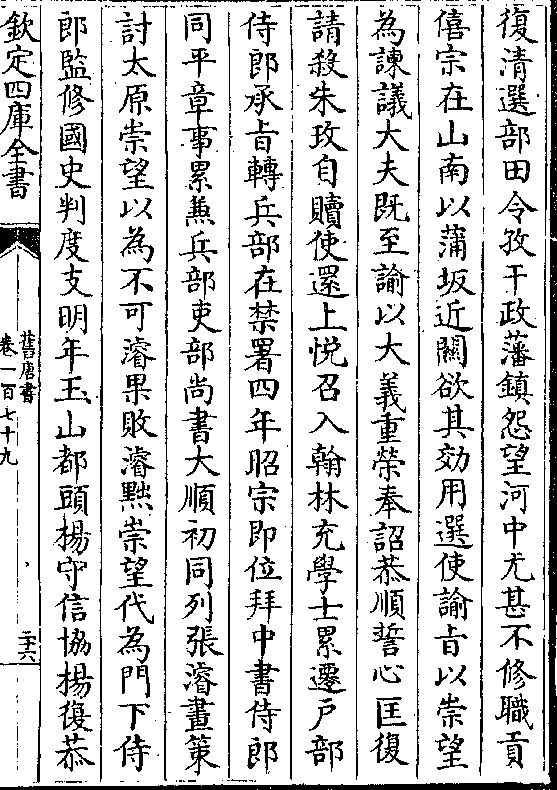 復清選部田令孜干政藩鎮怨望河中尤甚不修職貢
僖宗在山南以蒲坂近關欲其効用選使諭㫖以崇望
為諫議大夫既至諭以大義重榮奉詔恭順誓心匡復
請殺朱玫自贖使還上悦召入翰林充學士累遷戶部
侍郎承㫖轉兵部在禁署四年昭宗即位拜中書侍郎
同平章事累兼兵部吏部尚書大順初同列張濬畫策
討太原崇望以為不可濬果敗濬黜崇望代為門下侍
郎監修國史判度支明年玉山都頭楊守信協楊復恭
欽定四庫全書
舊唐書
卷一百七十九
二十六